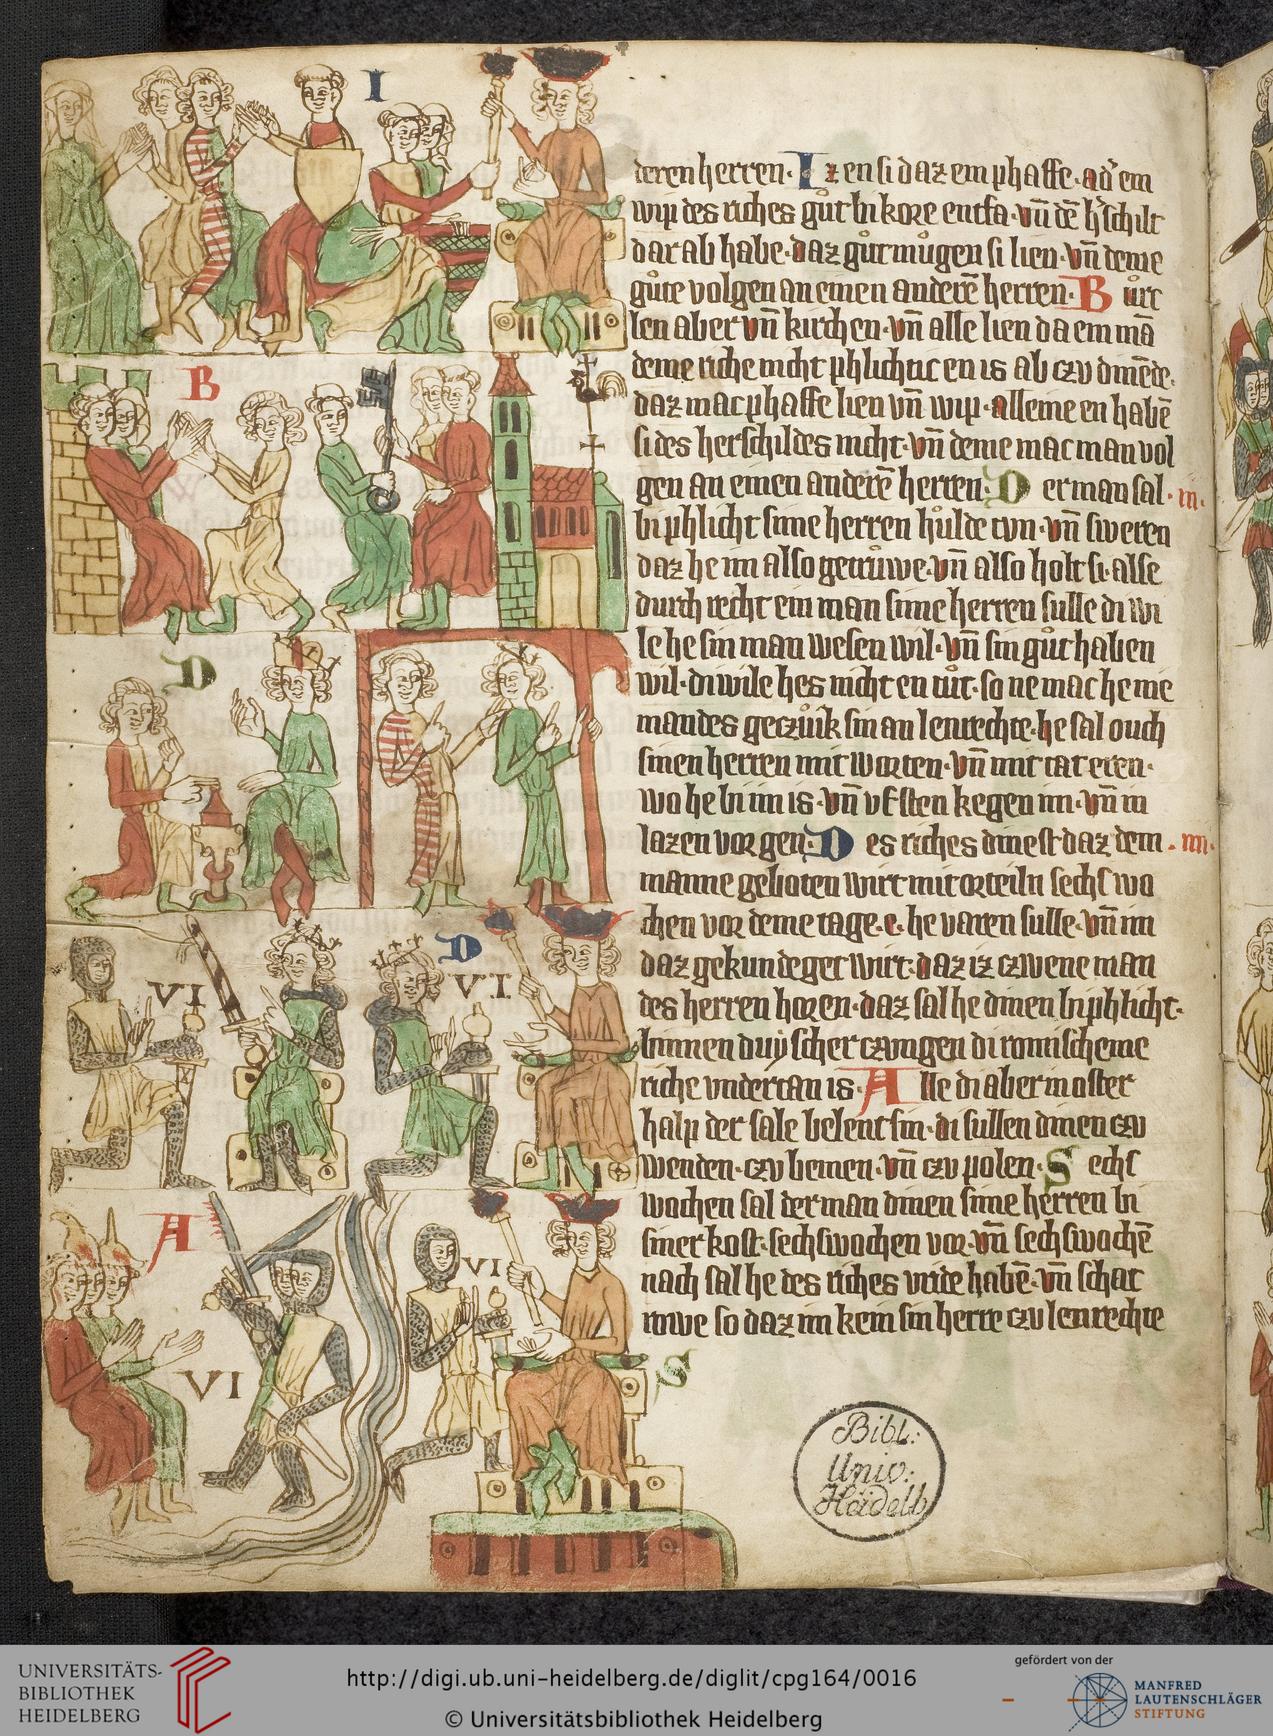 I
deren herren· I z en si daz ein phaffe· ad' ein
wip des riches gůt bi kore entfa· vñ dē h'schilt
dar ab habe· daz gůt mugen si lien· vñ deme
gůte volgen an einen anderē herren· B urc
len aber vñ kirchen· vñ alle lien da ein mā
deme riche nicht phlichtic en is ab czu
daz mac phaffe lien vñ wip· alleine en habē
si des herschildes nicht· vñ deme mac man vol
gen an einen anderē herren· D er man sal· III·
bi phlicht sime herren hulde tun· vñ sweren
daz he im also getruwe· vñ also holt si· alse
durch recht ein man sime herren sulle di wi
le he sin man wesen wil· vñ sin gůt haben
wil· di wile hes nicht en tůt· so ne mac he nie
mandes geczuk sin an lenrechte· he sal ouch
sinen herren mit worten· vñ mit tat eren·
wo he bi im is· vñ vf sten kegen im· vñ in
lazen vor gen· D es riches dinest daz dem · IIII·
manne geboten wirt mit orteiln sechs wo
chen vor deme tage· e· he varen sulle· vñ im
daz gekundeget wirt· daz iz czwene man
des herren horen· daz sal he dinen bi phlicht·
binnen duyscher czungen di romischeme
riche undertan is· A lle di aber in oster
halp der sale belent sin· di sullen dinen czu
wenden· czu bemen· vñ czu polen· S echs
wochen sal der man dinen sime herren bi
siner kost· sechs wochen vor· vñ sechs wochē
nach sal he des riches vride habē· vñ schar
rowe so daz in kein sin herre czu lenrechte
B
D
D
VI
VI
A
VI
VI
S
Bibl:
Univ:
Heidelb
UNIVERSITÄTS-
BIBLIOTHEK
HEIDELBERG
http://digi.ub.uni-heidelberg.de/diglit/cpg164/0016
© Universitätsbibliothek Heidelberg
gefördert von der
MANFRED
LAUTENSCHLÄGER
STIFTUNG